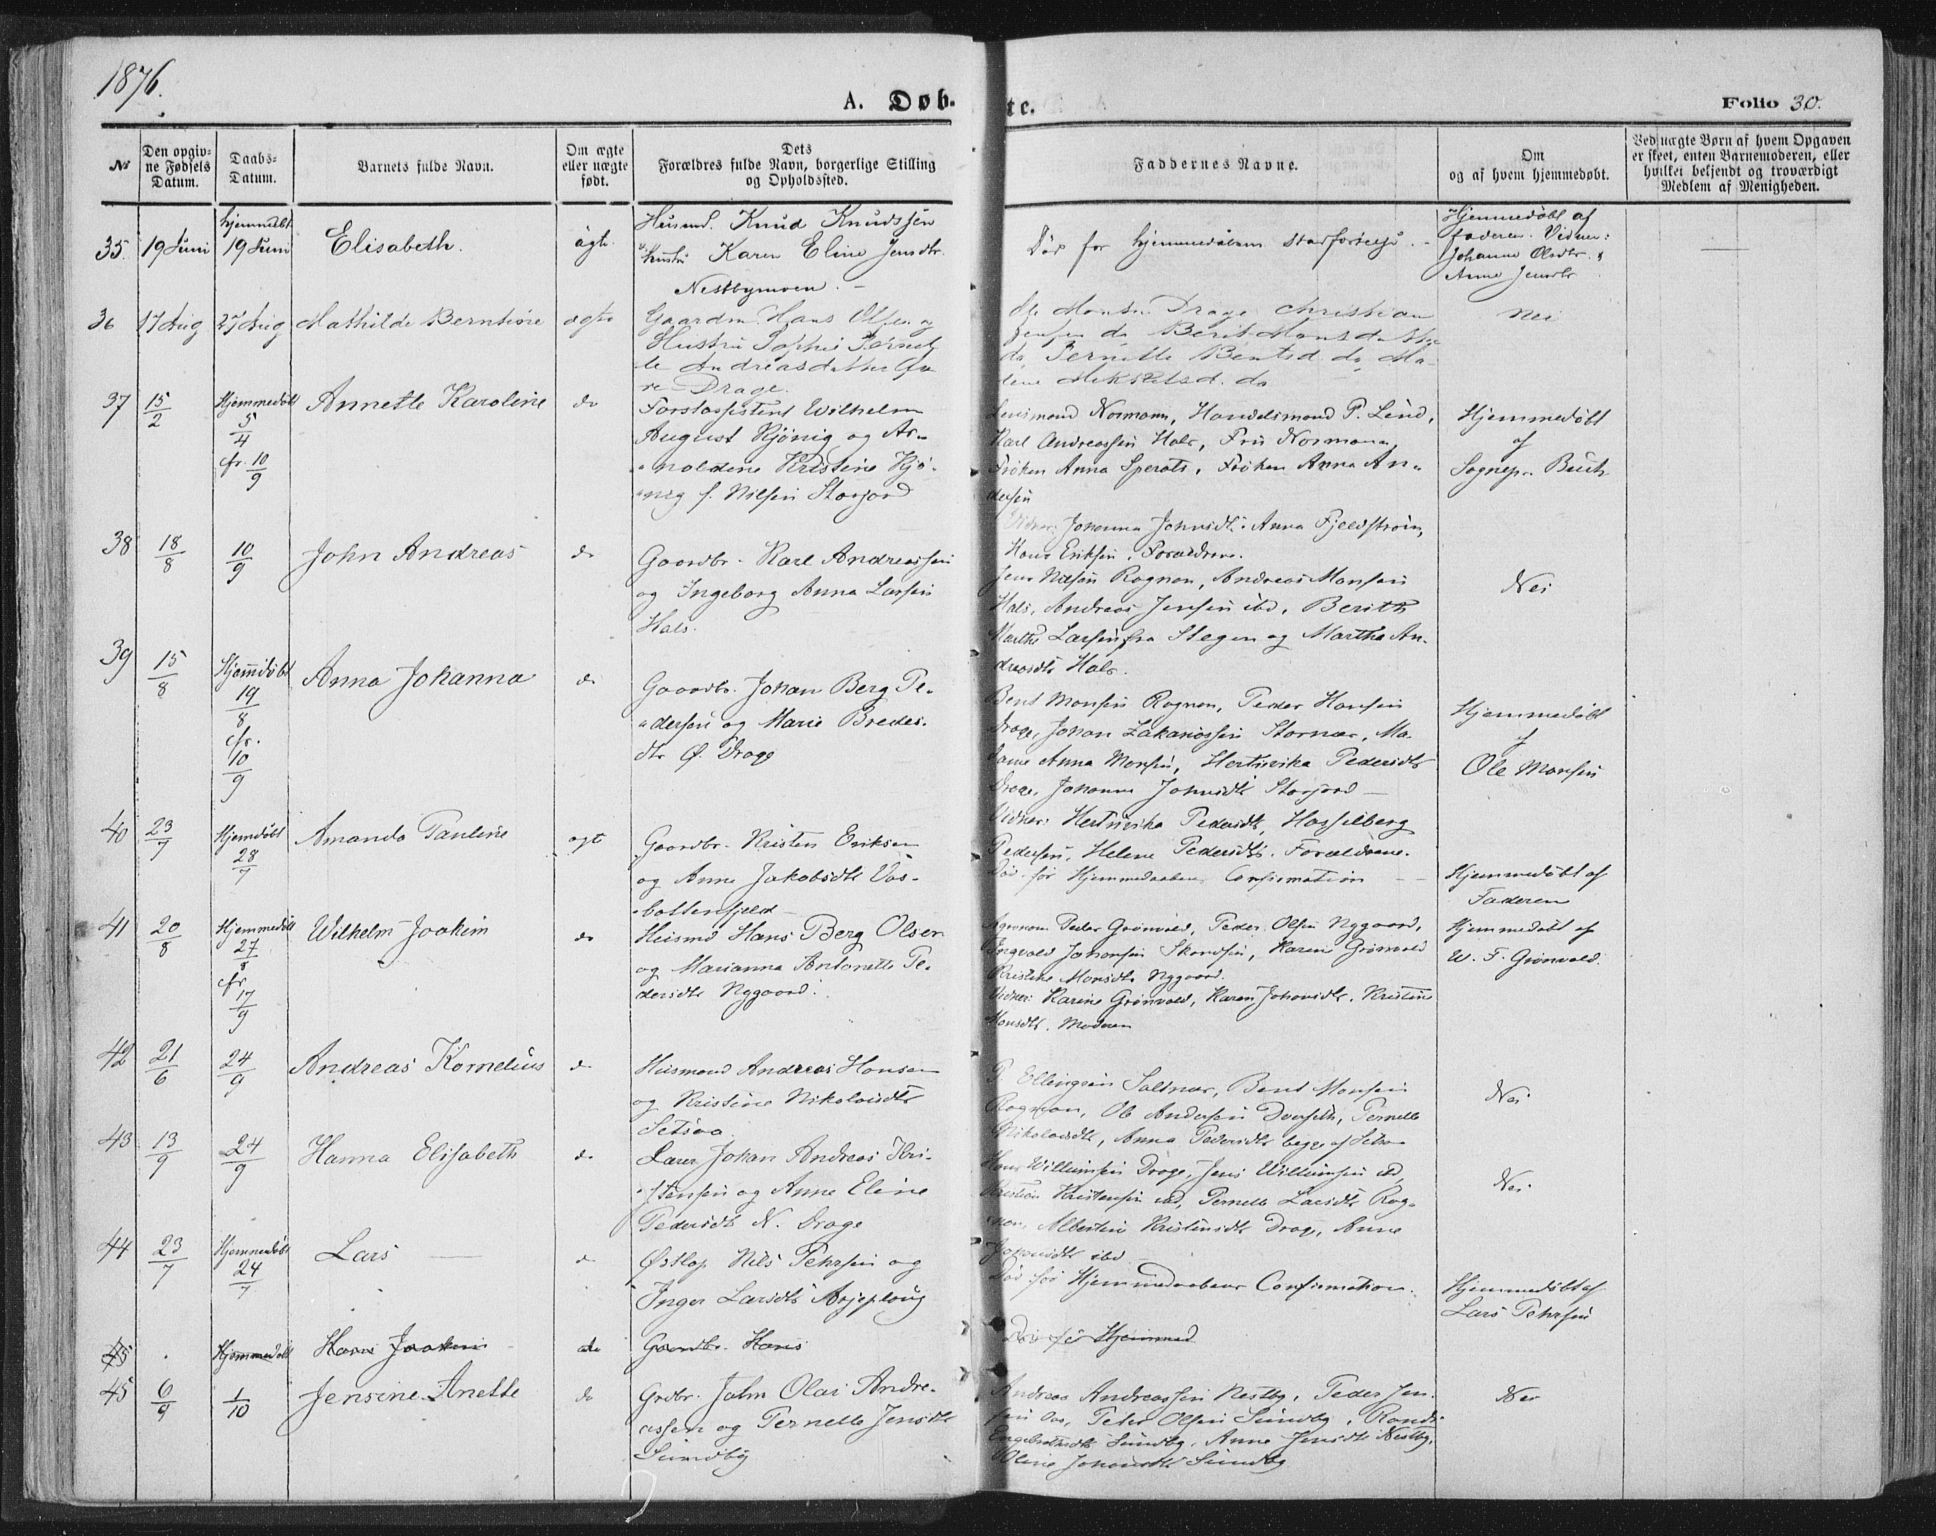 1876.
A. Døb-
te.
Folio 30.
№
Den opgiv-
ne Fødsels
Datum.
Daabs-
Datum.
Barnets fulde Navn.
Om ægte
eller uægte
født.
Dets
Forældres fulde Navn, borgerlige Stilling
og Opholdssted.
Faddernes Navne.
Om
og af hvem hjemmedøbt.
Ved uægte Børn af hvem Opgaven
er skeet, enten Barnemoderen, eller
hvilket bekjendt og troværdigt
Medlem af Menigheden.
35. 19 Juni
hjemmedbt
19 Juni
Elisabeth.
ägte
Husmd. Knud Knudssen
Karen Eline Jensdtr.
Nestbymoen.
Død for hjemmedaabens
Hjemmedøbt af
faderen. Vidner:
Johanne Olsdtr. &
Anne Jensdtr
36 17 Aug 27 Aug Mathilde Berntine ægte
Gaardm. Hans Olsen og
Hustru Sophie Pernel-
le Andreasdatter Øv-
re Drage.
Drage Christian
Jensen do Berit Hansd.
do Pernelle Bentsd. do Ma-
do
Nei
37 15/2
Hjemmedøbt
5/4
cfr. 10/9
Annette Karoline
do
Forstassistent Wilhelm
August Kjönig og Ar-
noldine Kristine Kjö-
nig f. Nilsen Storjord
Lensmand Normann, Handelsmand P. Lund,
Karl Andreassen Hals, Fru Normann,
Frøken Anna Sperati, Frøken Anna An-
dersen
Vidner: Johanna Johnsdtr. Anna Fjeldstrøm,
Hans Eriksen, Forældrene.
Hjemmedøbt
af
Sognep. Buch
38 18/8 10/9 John Andreas do
Gaardbr. Karl Andreassen
og Ingeborg Anna Larsen
Hals.
Jens Nilsen Rognan, Andreas Monsen
Hals, Andreas Jensen ibd, Berith
Marthe Larsen fra Stegen og Martha An-
dreasdtr Hals.
Nei
39 15/8
Hjemmedøbt
19/8
cfr.
10/9
Anna Johanna
do
Gaardbr. Johan Berg Pe-
dersen og Marie Bredes-
dtr Ø. Drage
Bent Monsen Rognan, Peder Hansen
Drage, Johan Zakariassen Stornær, Ma-
dame Anna Monsen, Hertvika Pedersdtr
Drage, Johanna Johnsdtr Storjord
Vidner: Hertvika Pedersdtr, Hasselberg
Pedersen, Helene Pedersdtr. Forældrene.
Hjemmedøbt
af
Ole Monsen
40 23/7
Hjemdøbt
28/7
Amanda Pauline
ægte
Gaardbr. Kristen Eriksen
og Anne Jakobsdtr Vas-
bottenfjeld
Død før Hjemmedaabens Confirmation
Hjemmedøbt af
Faderen
41 20/8
Hjemmedøbt
27/8
cfr
17/9
Wilhelm Joakim
do
Husmd Hans Berg Olsen
og Marianna Antonette Pe-
dersdtr Nygaard.
Agronom Peder Grönvold, Peder Olsen Nygaard,
Ingvald Johansen Skandsen, Karen Grönvold
Kristine Monsdtr Nygaard.
Vidner: Karine Grönvold, Karen Johansdtr. Kristine
Monsdtr. Moderen
Hjemmedøbt af
W. F. Grönvold.
42 21/6 24/9 Andreas Kornelius do
Husmand Andreas Hansen
og Kristine Nikolaisdtr
Setsaa
P. Ellingsen Saltnær, Bent Monsen
Rognan, Ole Andersen Dverseth, Pernelle
Nikolaisdtr, Anna Pedersdtr begge af Setsaa
Nei
43 13/9 24/9 Hanna Elisabeth do
Lærer Johan Andreas Kri-
stensen og Anne Eline
Pedersdtr N. Drage
Hans Willumsen Drage, Jens Willumsen ibd,
Kristian Kristensen ibd, Pernelle Larsdtr Rog-
nan, Albertine Kristensdtr Drage, Anne
Johansdtr ibd
Nei
44 23/7
Hjemmedøbt
24/7
Lars
do
Østlap Nils Pehrsen og
Inger Larsdtr Arjeploug
Død før Hjemmedaabens Confirmation.
Hjemmedøbt af
Lars Pehrsen
45 Hjemmedøbt Hans Joakim do Gaardbr. Hans
Død før Hjemmed
45 6/9 1/10 Jensine Anette do
Grdbr. John Olai Andre-
assen og Pernelle Jensdtr
Sundby
Andreas Andreassen Nestby, Peder Jen-
sen Peder Olsen Sundby, Randi
Engebretsdtr Sundby, Anne Jensdtr Nestby,
Oline Johansdtr Sundby
Nei